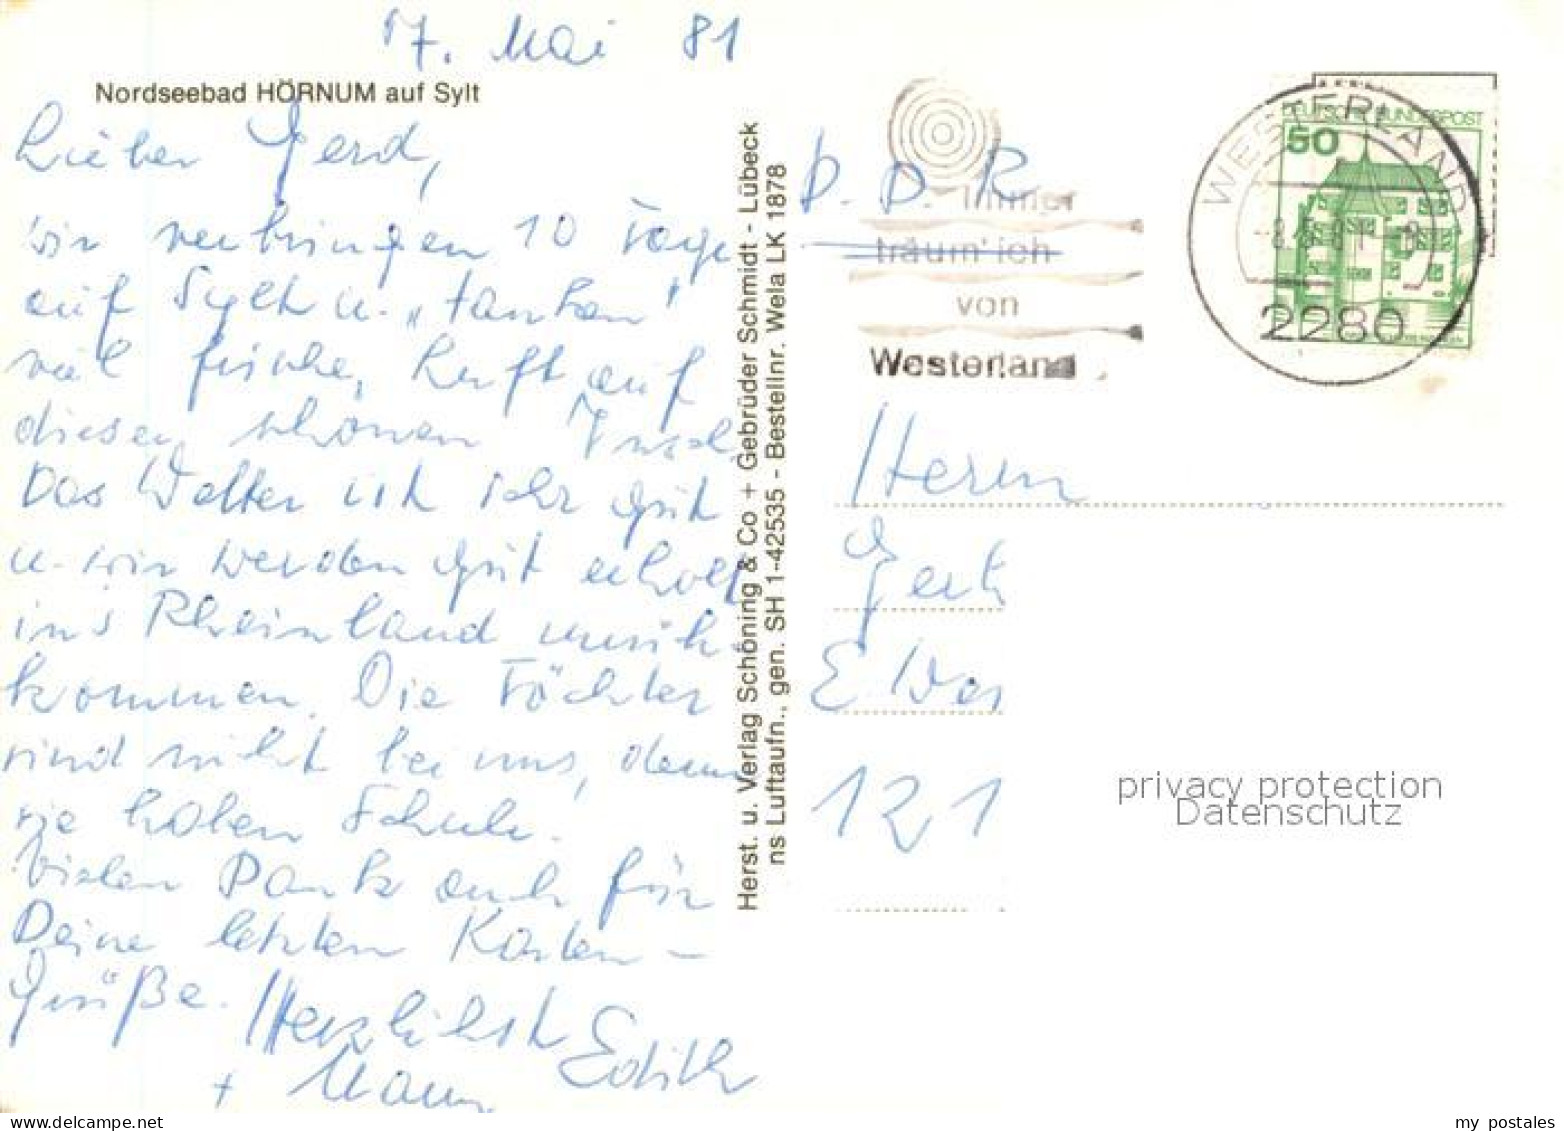 17. Mai 81
Nordseebad HÖRNUM auf Sylt
Lieber Gerd,
wir verbringen 10 Tage
auf Sylt u. „tanken"
viel frische Luft auf
dieser schönen Insel.
Das Wetter ist sehr gut
u. wir werden gut erholt
ins Rheinland zurück-
kommen. Die Töchter
sind nicht bei uns, denn
sie haben Schule.
Vielen Dank auch für
Deine letzten Karten-
grüße. Herzlichst Edith
+ Mann
Herst. u. Verlag Schöning & Co + Gebrüder Schmidt - Lübeck
ns Luftaufn., gen. SH 1-42535 - Bestellnr. Wela LK 1878
D. D. R.
immer
träum' ich
von
Westerland
WESTERLAND
2280
DEUTSCHE BUNDESPOST
50
Herrn
121
privacy protection
Datenschutz
my postales